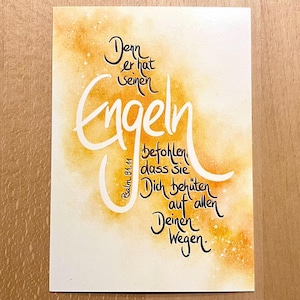 Denn
er hat
seinen
Engeln
befohlen,
dass sie
Dich behüten
auf allen
Deinen
Wegen.
Psalm 91.11